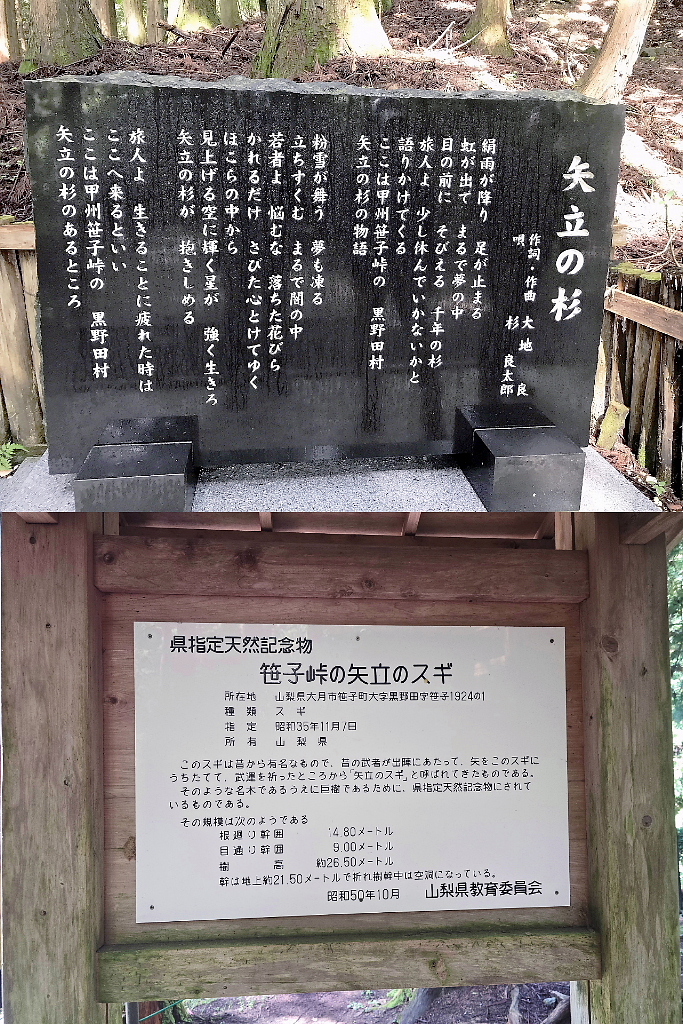 矢立の杉
作詞・作曲 大地 良
唄 杉 良太郎
絹雨が降り 足が止まる
虹が出て まるで夢の中
目の前に そびえる 千年の杉
旅人よ 少し休んでいかないかと
語りかけてくる
ここは甲州笹子峠の 黒野田村
矢立の杉の物語
粉雪が舞う 夢も凍る
立ちすくむ まるで闇の中
若者よ 悩むな 落ちた花びら
かれるだけ さびた心とけてゆく
ほこらの中から
見上げる空に輝く星が 強く生きろ
矢立の杉が 抱きしめる
旅人よ 生きることに疲れた時は
ここへ来るといい
ここは甲州笹子峠の 黒野田村
矢立の杉のあるところ
県指定天然記念物
笹子峠の矢立のスギ
所在地 山梨県大月市笹子町大字黒野田字笹子1924の1
種類 スギ
指定 昭和35年11月7日
所有 山梨県
このスギは昔から有名なもので、昔の武者が出陣にあたって、矢をこのスギに
うちたてて、武運を祈ったところから「矢立のスギ」と呼ばれてきたものである。
そのような名木であるうえに巨樹であるために、県指定天然記念物にされて
いるものである。
その規模は次のようである
根廻り幹囲 14.80メートル
目通り幹囲 9.00メートル
樹高 約26.50メートル
幹は地上約21.50メートルで折れ樹幹中は空洞になっている。
昭和50年10月 山梨県教育委員会